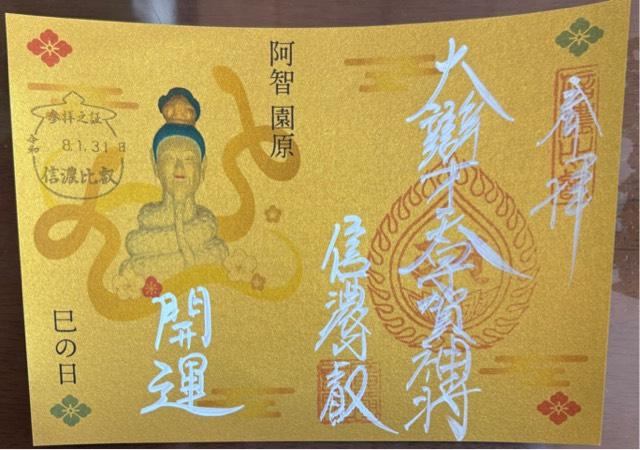 奉拝
大辯才天宇賀神将
信濃比叡
阿智 園原
開運
参拝之証
令和
8.1.31
信濃比叡
巳の日